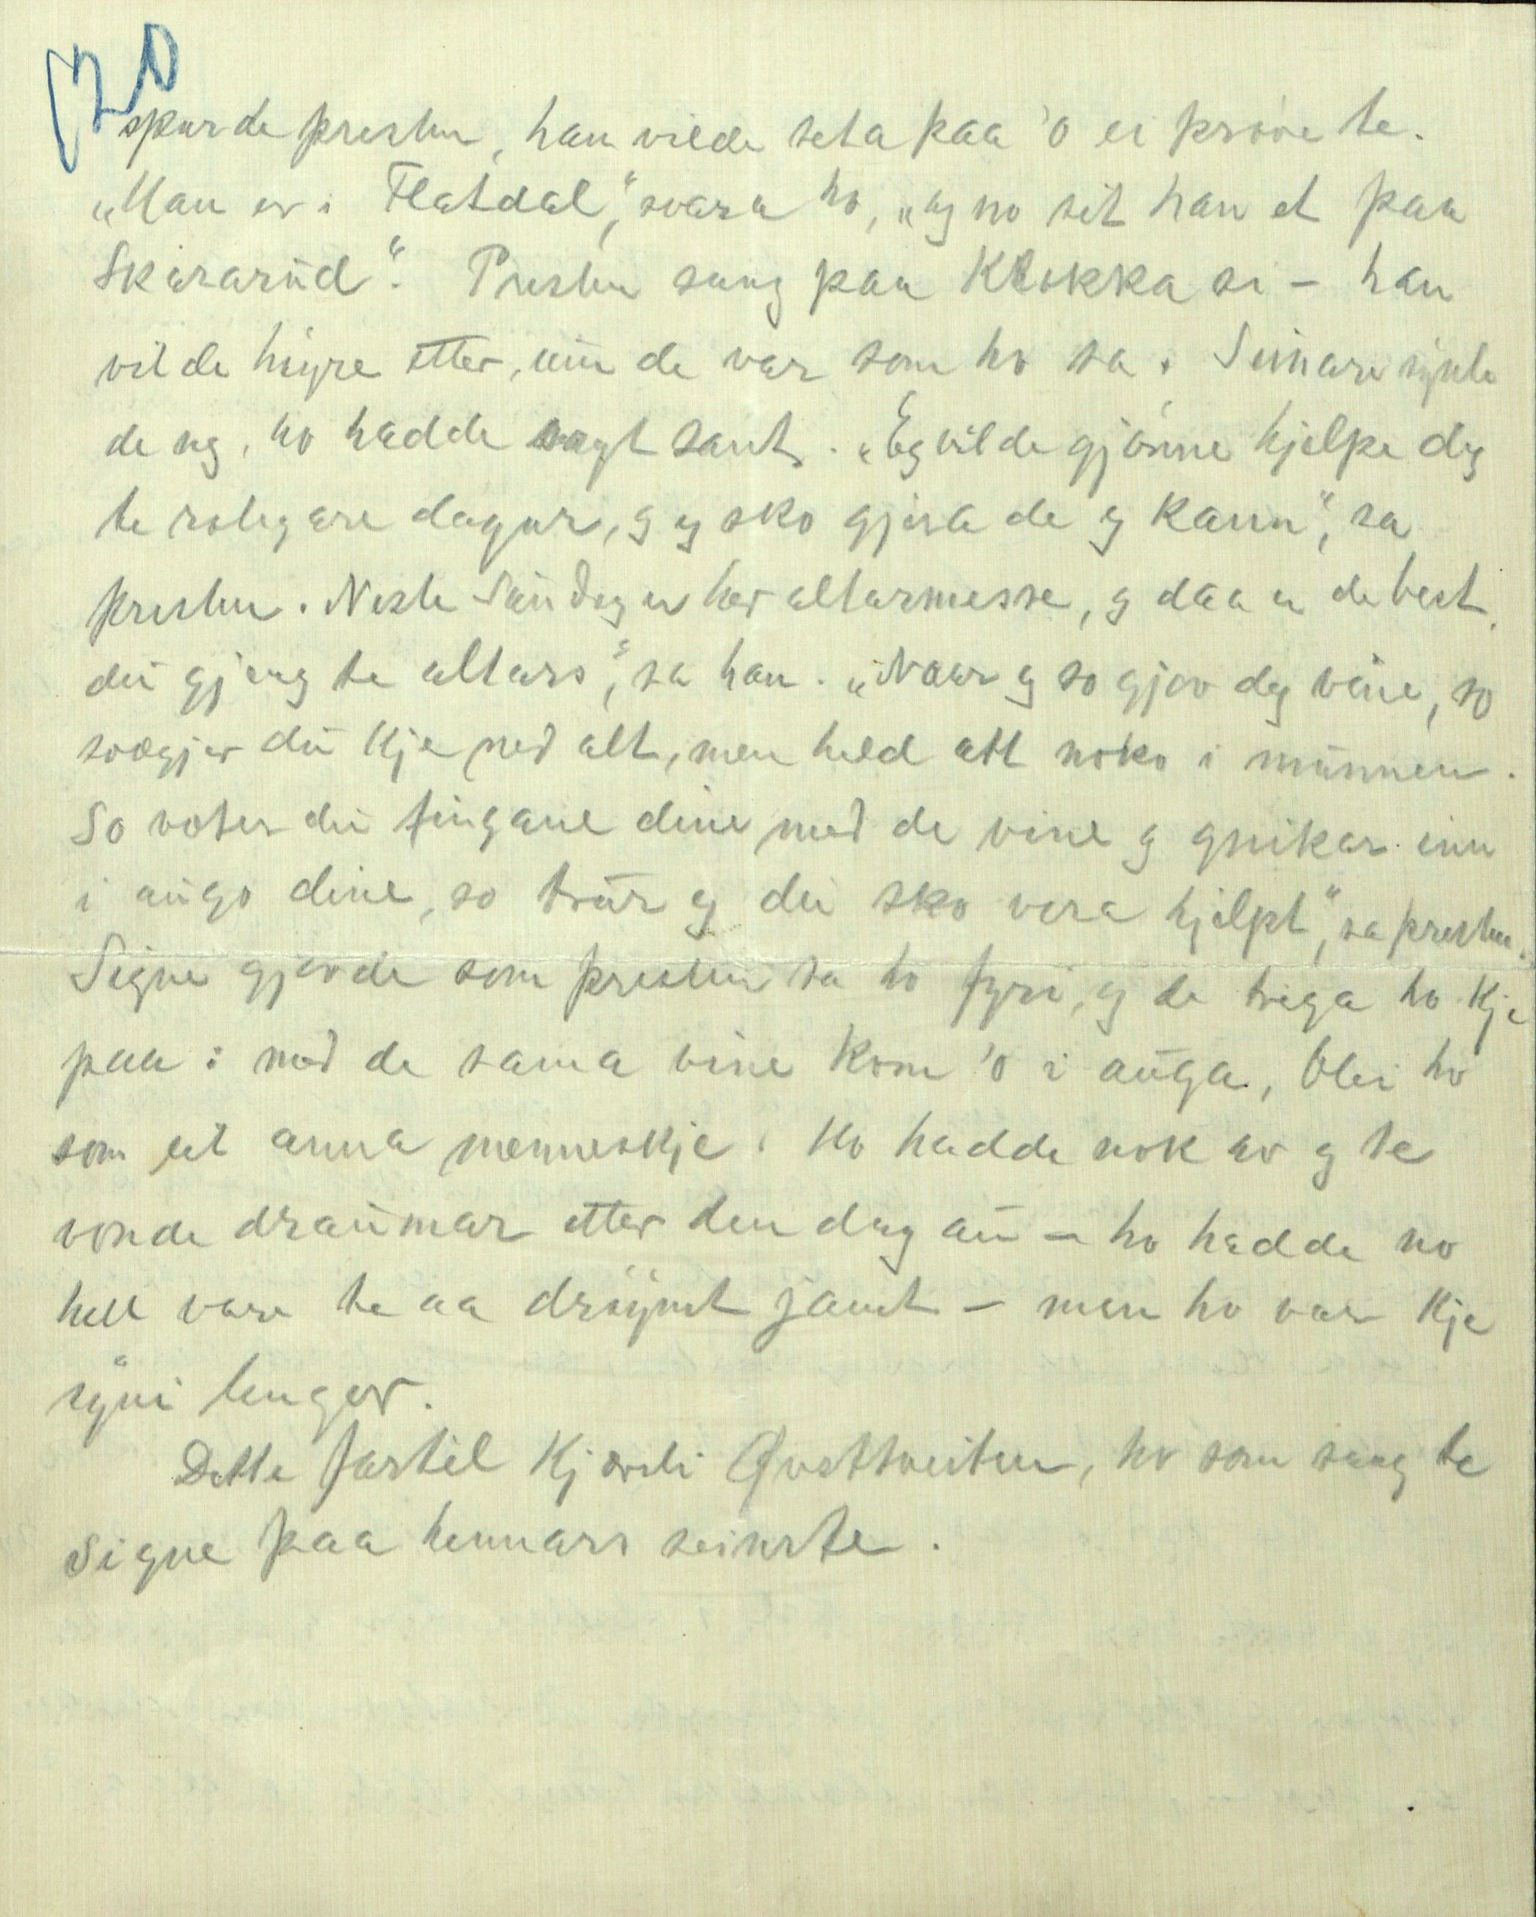 20
spurde presten, han vilde seta paa 'o ei prøve te.
„Han er i Flatdal", svara ho, „og no sit han et paa
Skårarud". Presten saag paa klokka si – han
vilde høyre etter, um de var som ho sa. Seinare synte
de seg, ho hadde sagt sant. „Eg vilde gjønne hjelpe deg
te rolegare dagar, og eg sko gjera de eg kann", sa
presten. Neste Sundag er her altarmesse, og daa er de best,
du gjeng te altars", sa han. „Naar eg so gjev deg vine, so
svægjer du kje ned alt, men held att noko i munnen.
So væter du fingane dine med de vine og gnikar inn
i augo dine, so trur eg du sko vera hjelpt", sa presten.
Signe gjorde som presten sa ho fyri, og de trega ho kje
paa: med de sama vine kom 'o i auga, blei ho
som eit anna menneskje. Ho hadde nok av og te
vonde draumar etter den dag au – ho hadde no
hell vare te aa drøymt jamt – men ho var kje
syni lenger.
Dette fortel Kjersti Qvsttveiten, ho som saag te
Signe paa hennars seinste.